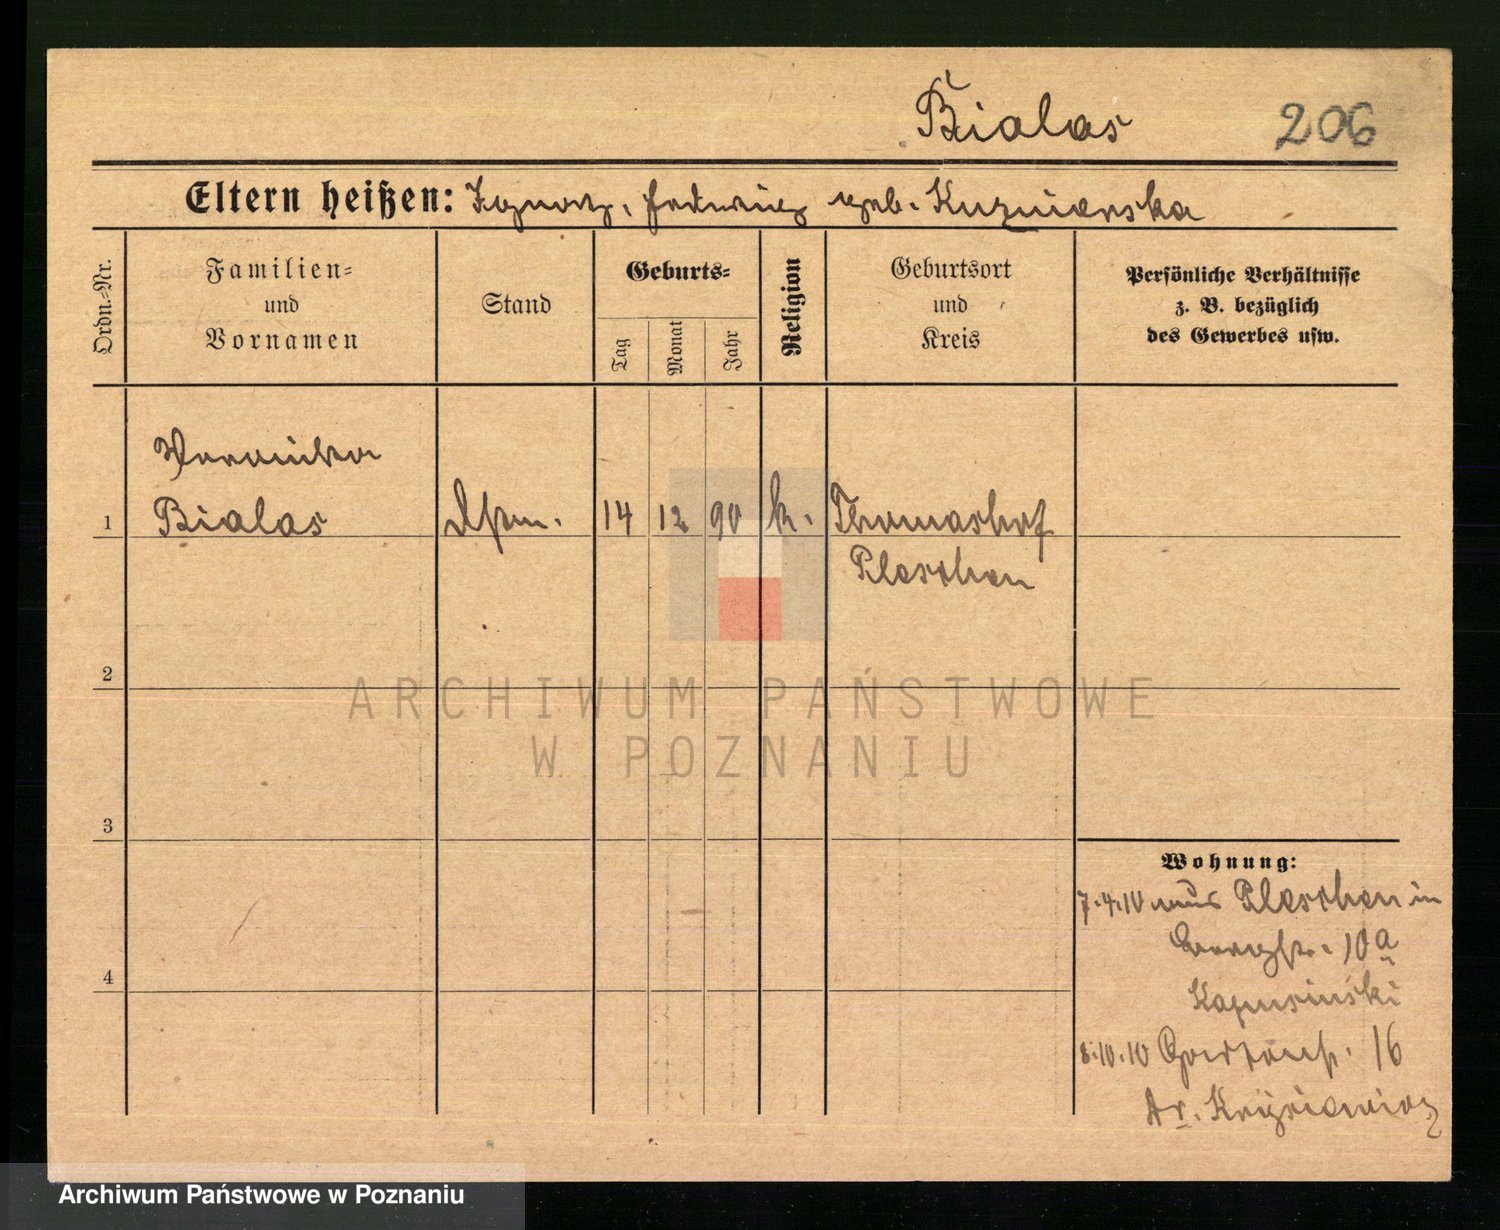 Bialas 206
Eltern heißen: Ignatz, Hedwig geb. Kuzniarska
Ordn.-Nr.
Familien-
und
Vornamen
Stand
Geburts-
Tag
Monat
Jahr
Religion
Geburtsort
und
Kreis
Persönliche Verhältnisse
z. B. bezüglich
des Gewerbes usw.
Veronika
1 Bialas 14 12 90 k. Thomashof
Pleschen
2
3
4
Wohnung:
7.4.10 aus Pleschen in
10a
8.10.10 16
Dr.
ARCHIWUM PAŃSTWOWE
W POZNANIU
Archiwum Państwowe w Poznaniu